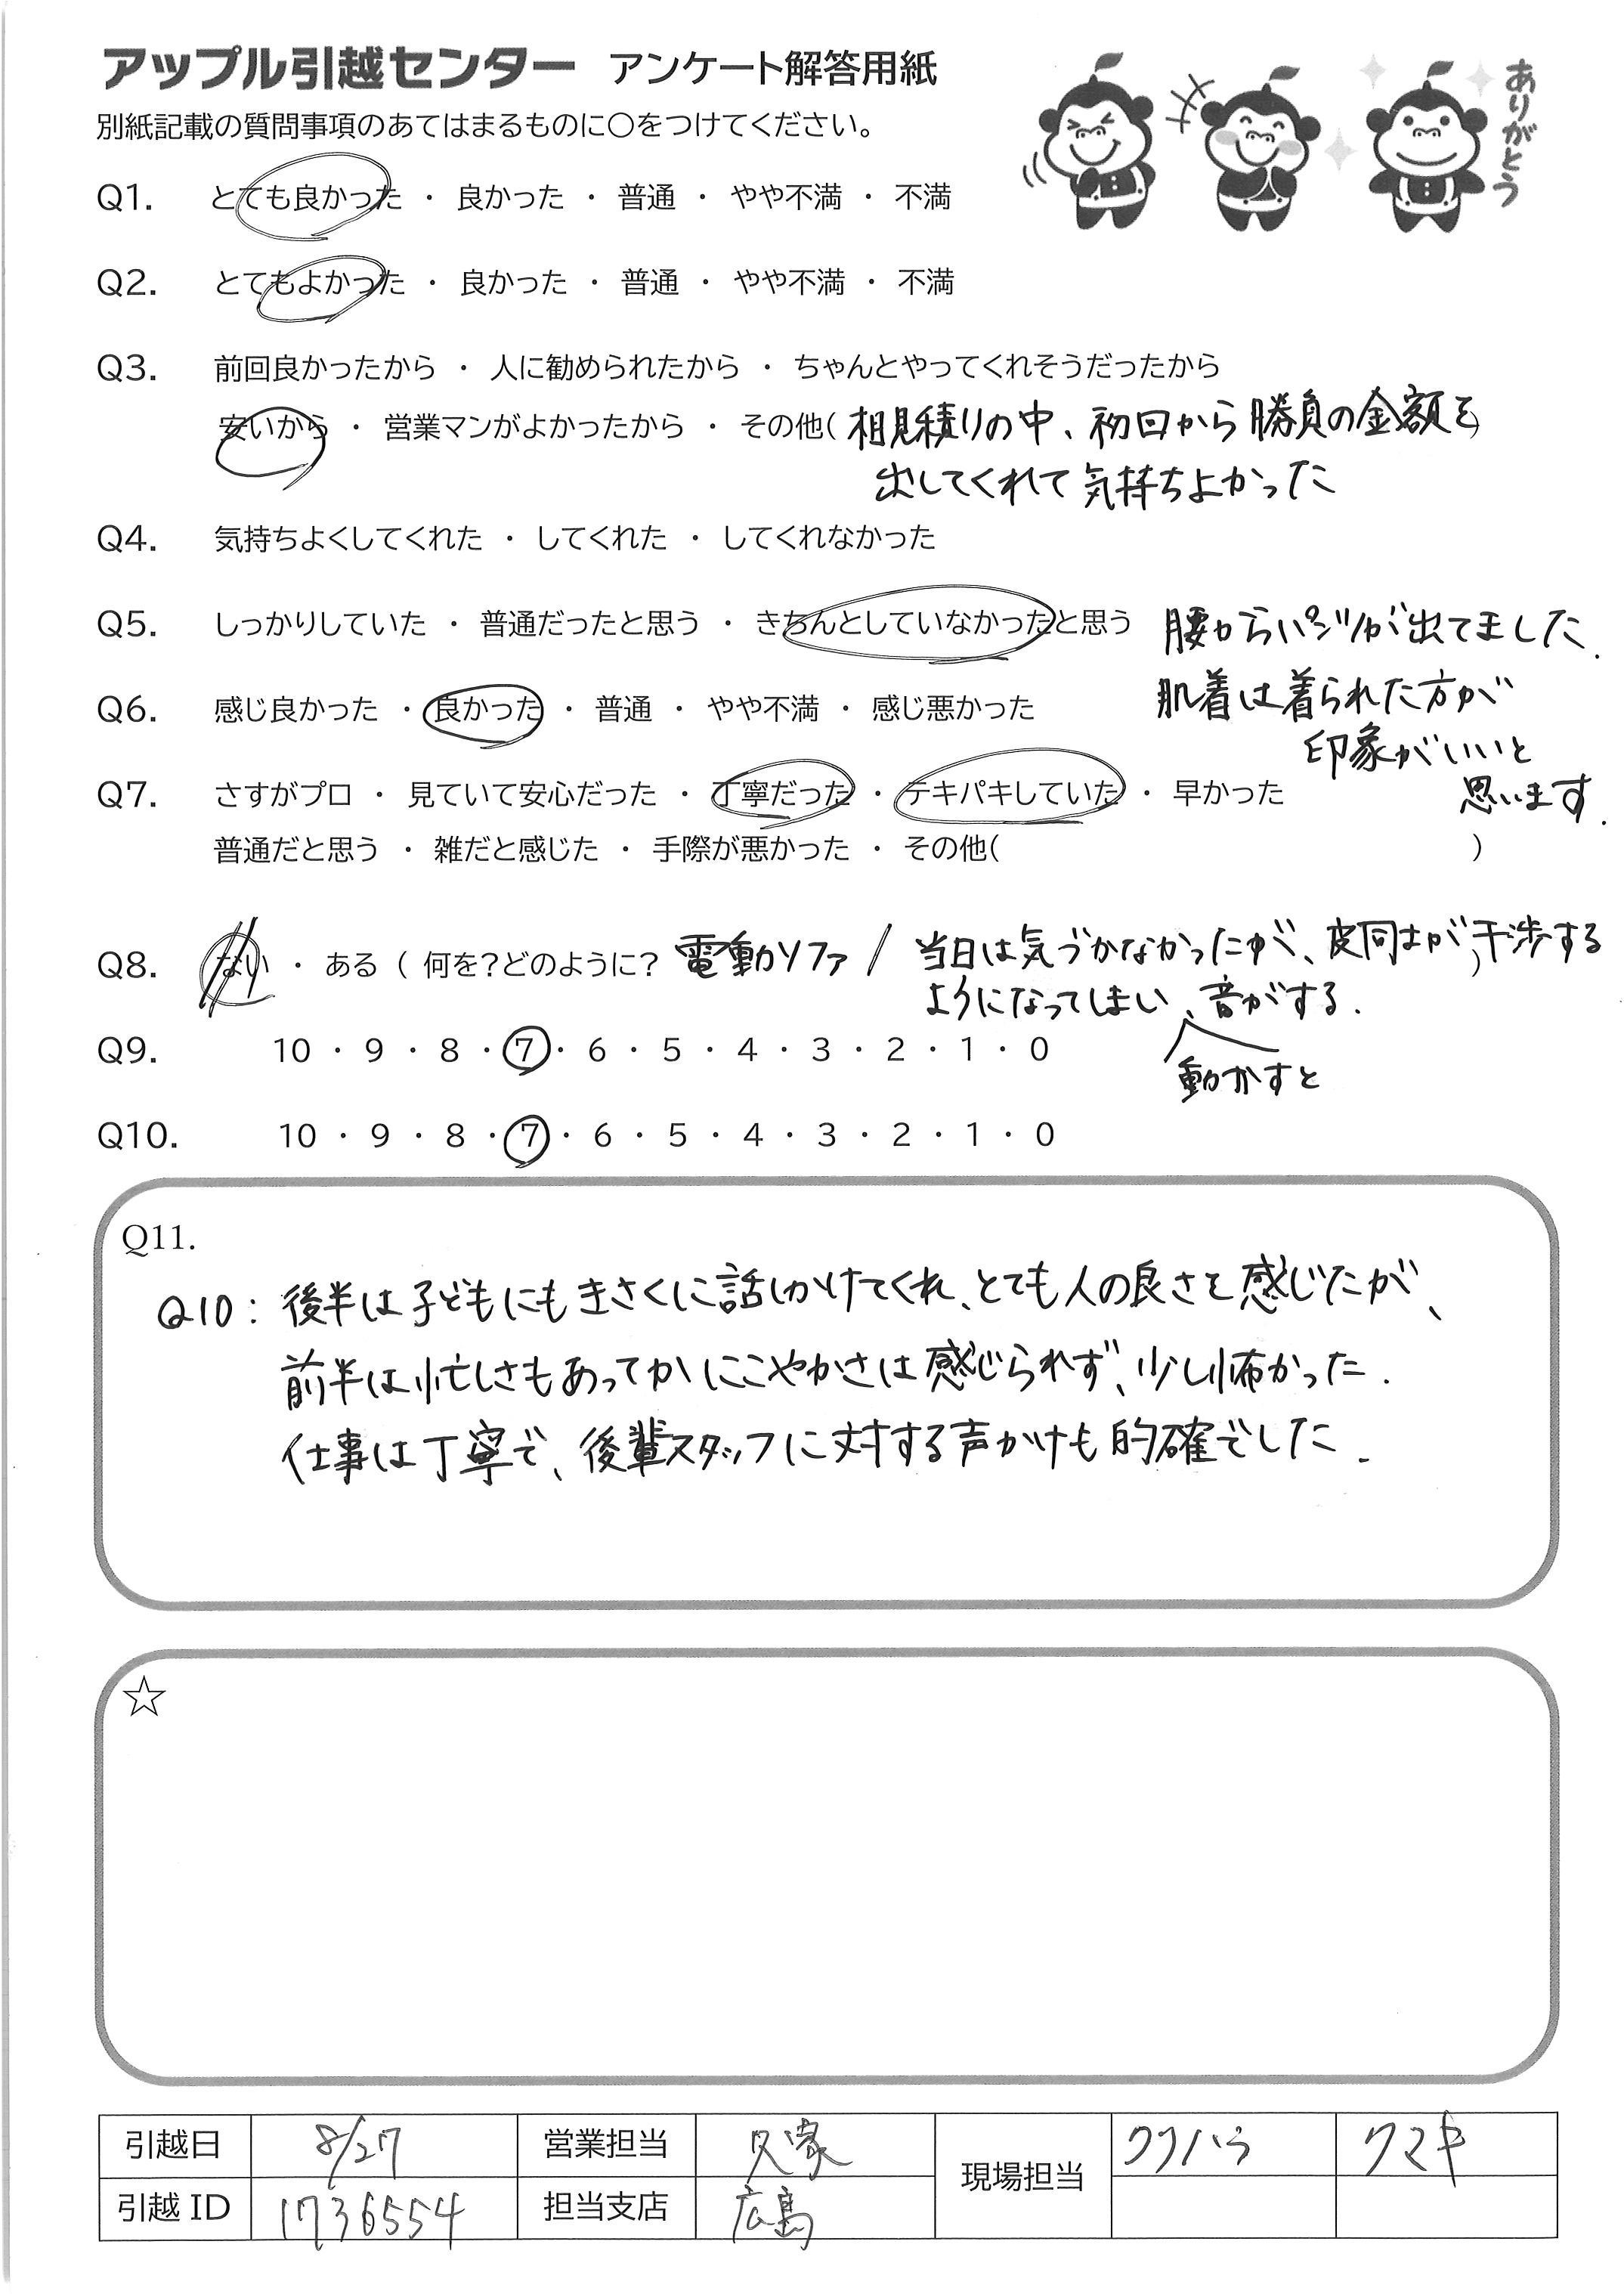 アップル引越センター アンケート解答用紙
ありがとう
別紙記載の質問事項のあてはまるものに○をつけてください。
Q1. とても良かった ・ 良かった ・ 普通 ・ やや不満 ・ 不満
Q2. とてもよかった ・ 良かった ・ 普通 ・ やや不満 ・ 不満
Q3. 前回良かったから ・ 人に勧められたから ・ ちゃんとやってくれそうだったから
安いから ・ 営業マンがよかったから ・ その他( 相見積りの中、初回から勝負の金額を )
出してくれて気持ちよかった
Q4. 気持ちよくしてくれた ・ してくれた ・ してくれなかった
Q5. しっかりしていた ・ 普通だったと思う ・ きちんとしていなかったと思う 腰からパンツが出てました.
肌着は着られた方が
Q6. 感じ良かった ・ 良かった ・ 普通 ・ やや不満 ・ 感じ悪かった
印象がいいと
Q7. さすがプロ ・ 見ていて安心だった ・ 丁寧だった ・ テキパキしていた ・ 早かった
思います.
普通だと思う ・ 雑だと感じた ・ 手際が悪かった ・ その他( )
Q8. ない ・ ある ( 何を?どのように? 電動ソファ / 当日は気づかなかったが、皮同士が干渉する )
ようになってしまい、音がする.
動かすと
Q9. 10 ・ 9 ・ 8 ・ 7 ・ 6 ・ 5 ・ 4 ・ 3 ・ 2 ・ 1 ・ 0
Q10. 10 ・ 9 ・ 8 ・ 7 ・ 6 ・ 5 ・ 4 ・ 3 ・ 2 ・ 1 ・ 0
Q11.
Q10: 後半は子どもにもきさくに話しかけてくれ、とても人の良さを感じたが、
前半は忙しさもあってかにこやかさは感じられず、少し怖かった.
仕事は丁寧で、後輩スタッフに対する声かけも的確でした.
☆
引越日 8/27 営業担当 久家 現場担当 クワハラ クマキ
引越ID 1736554 担当支店 広島